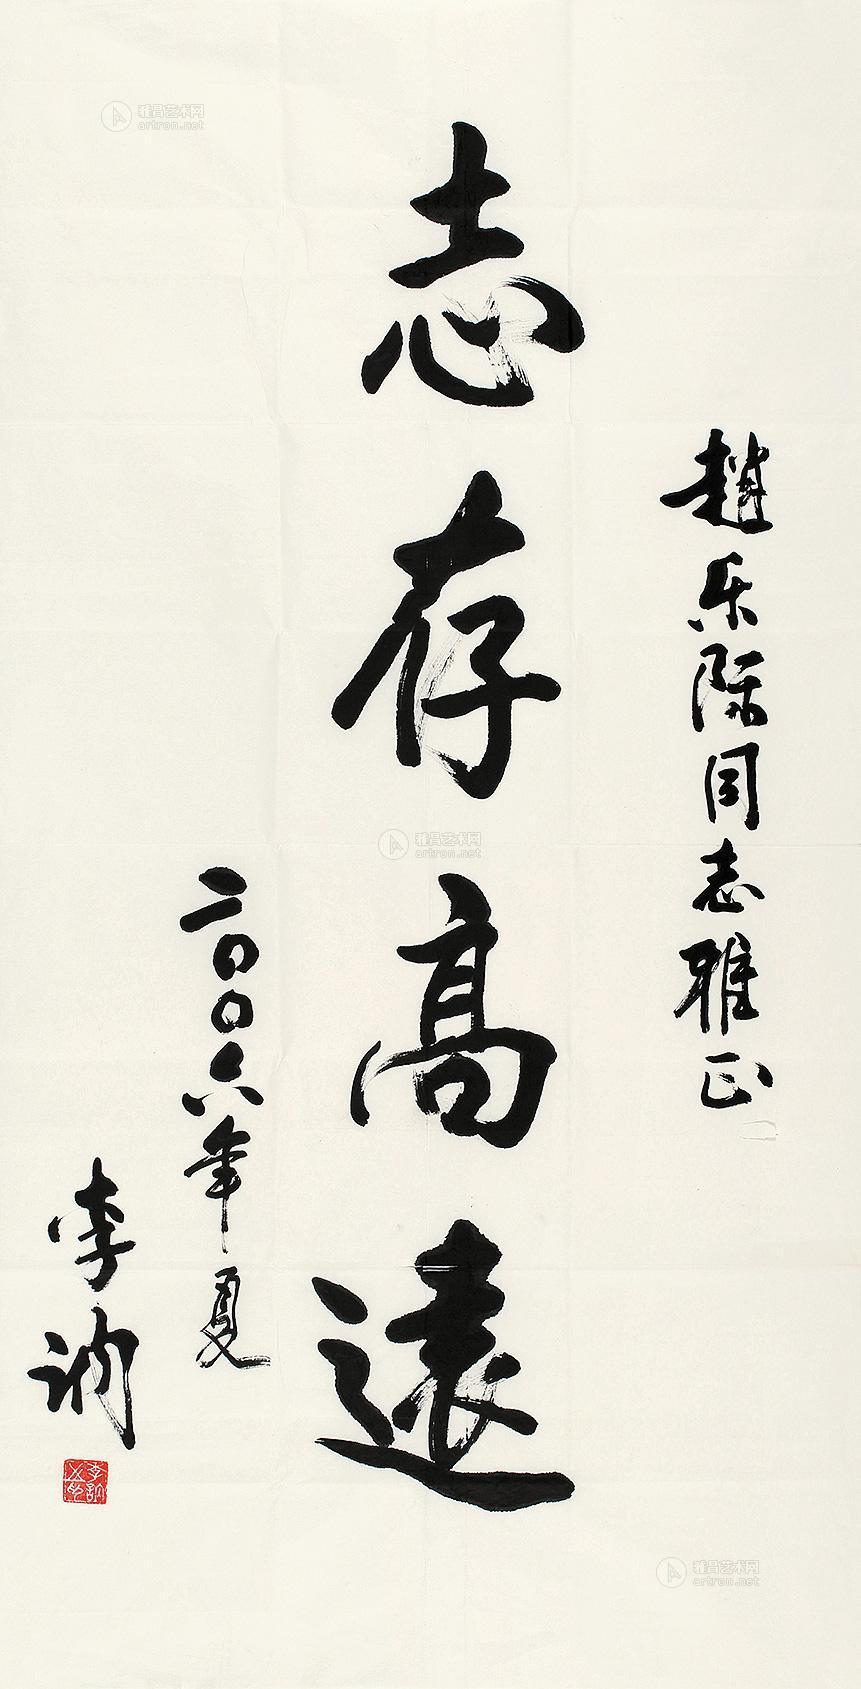 趙乐际同志雅正
志存高遠
二〇〇六年夏
李讷
李訥之印
雅昌艺术网
artron.net
雅昌艺术网
artron.net
雅昌艺术网
artron.net